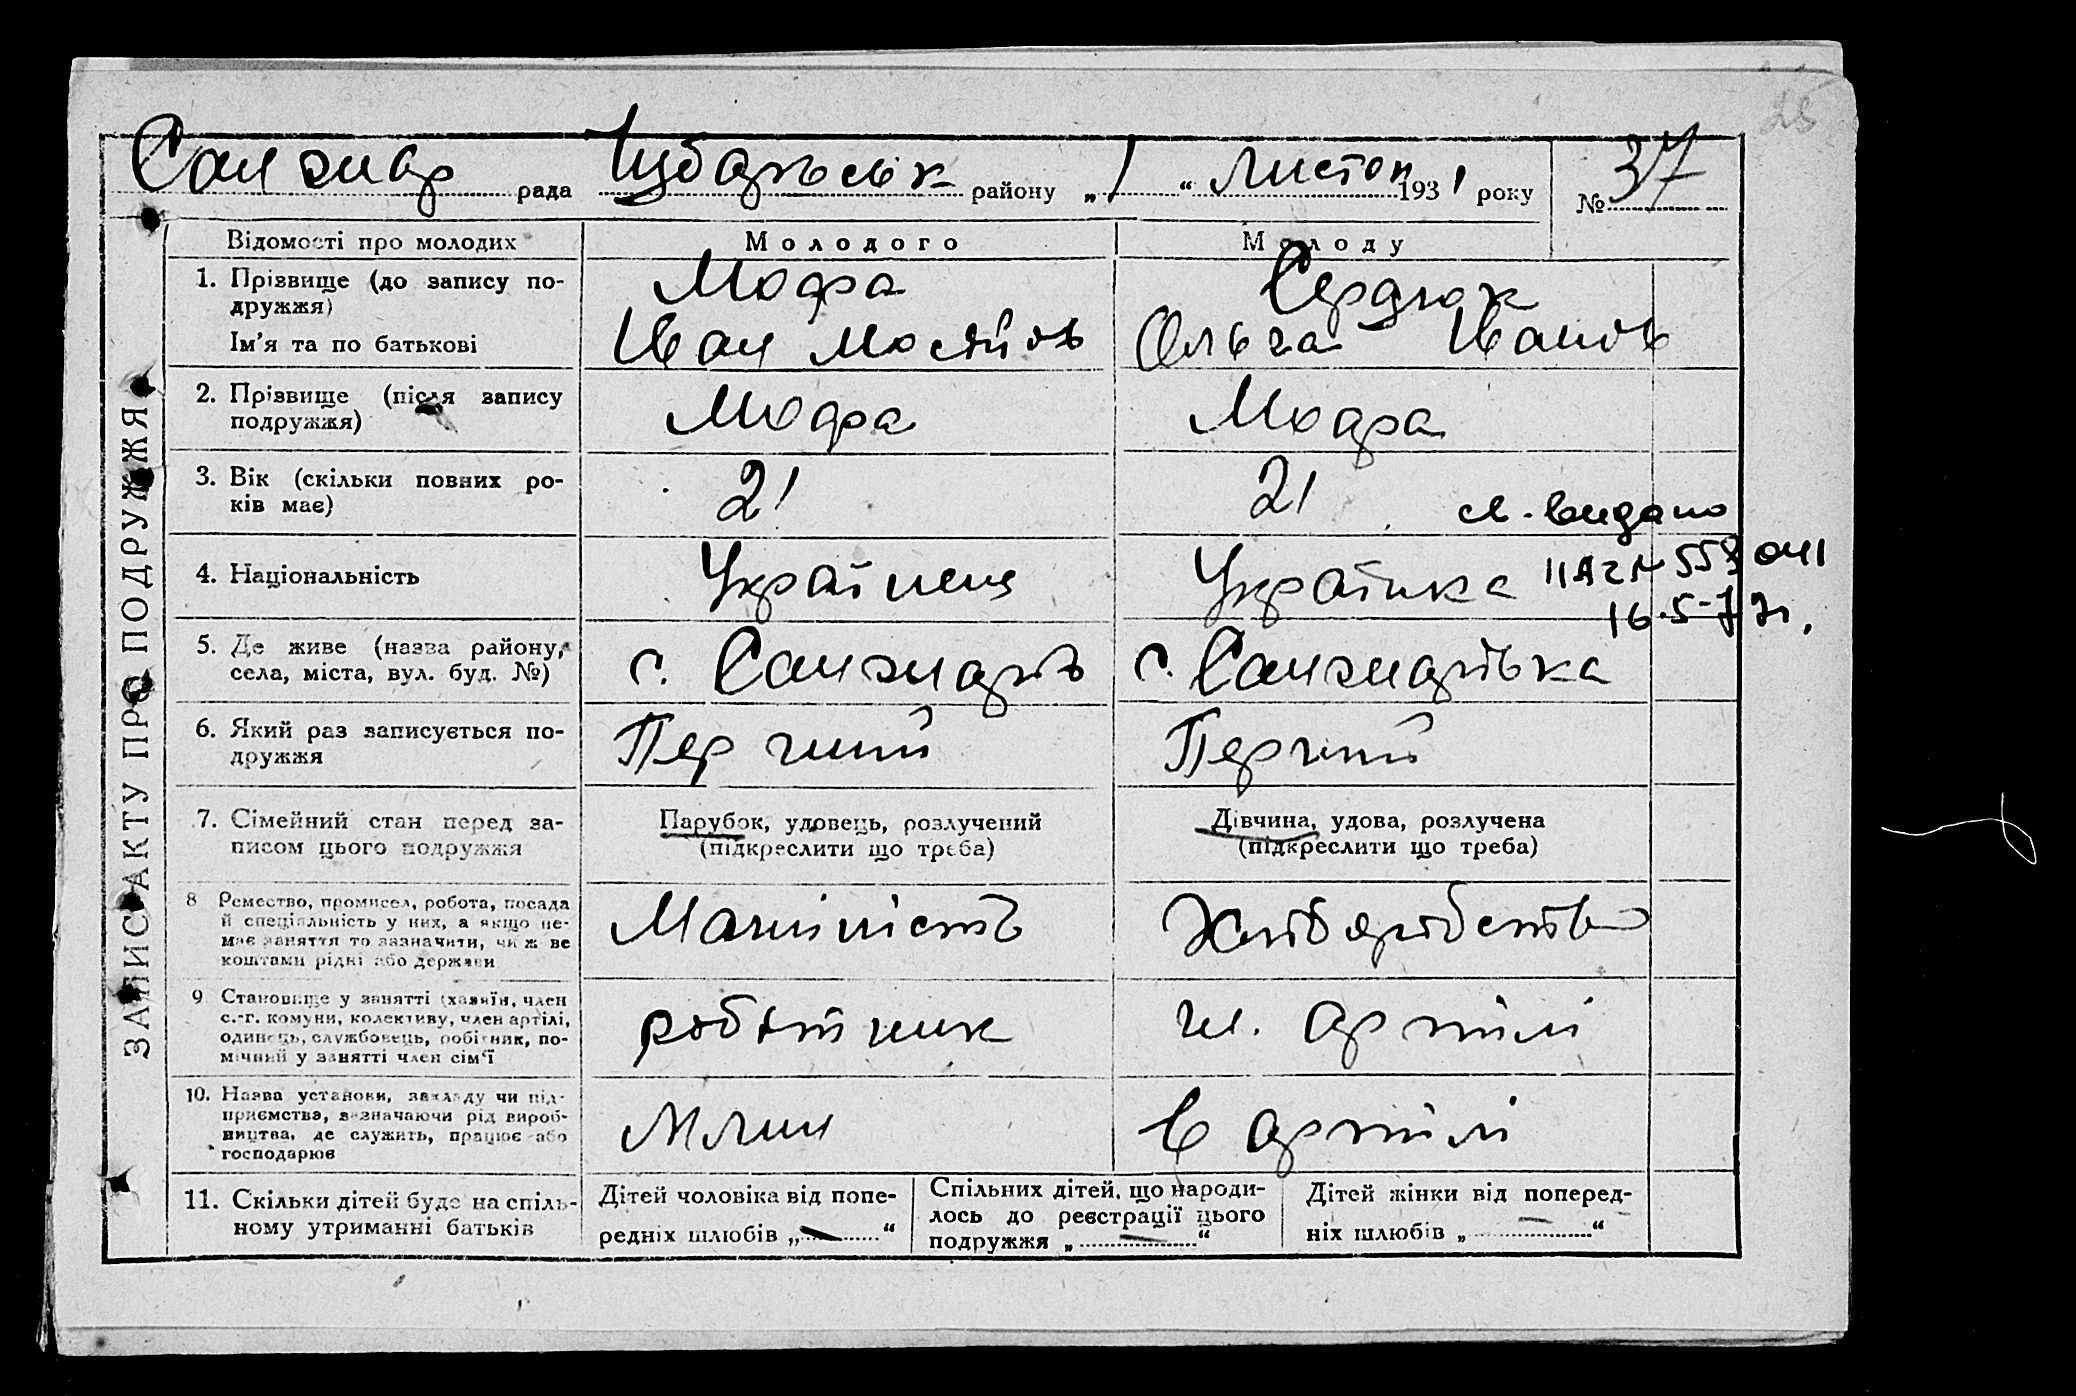 25
Санжар рада Чубарьськ району „1“ Листоп 1931 року № 37
ЗАПИС АКТУ ПРО ПОДРУЖЖЯ
Відомості про молодих Молодого Молоду
1. Прізвище (до запису по-
дружжя) Мофа Сердюк
Ім'я та по батькові Иван Мосійов Ольга Іванів
2. Прізвище (після запису
подружжя) Мофа Мофа
3. Вік (скільки повних ро-
ків має) 21 21
св. видано
4. Національність Українец Українка
ІІ АГ № 558041
16.5-77г.
5. Де живе (назва району,
села, міста, вул. буд. №) с. Санжарів с. Санжарівка
6. Який раз записується по-
дружжя Перчий Перчий
7. Сімейний стан перед за-
писом цього подружжя
Парубок, удовець, розлучений
(підкреслити що треба)
Дівчина, удова, розлучена
(підкреслити що треба)
8 Ремество, промисел, робота, посада
й спеціяльність у них, а якщо не-
має заняття то зазначити, чи ж ве
коштами рідні або держави
Машиніст Хліборобство
9 Становище у занятті (хазяїн, член
с.-г. комуни, колективу, член артілі,
одинець, службовець, робітник, по-
мічний у занятті член сім'ї
робітник чл. артілі
10. Назва установи, закладу чи під-
приємства, зазначаючи рід вироб-
ництва, де служить, працює або
господарює
Млин в артілі
11. Скільки дітей буде на спіль-
ному утриманні батьків
Дітей чоловіка від попе-
редніх шлюбів „—“
Спільних дітей, що народи-
лось до реєстрації цього
подружжя „—“
Дітей жінки від поперед-
ніх шлюбів „—“